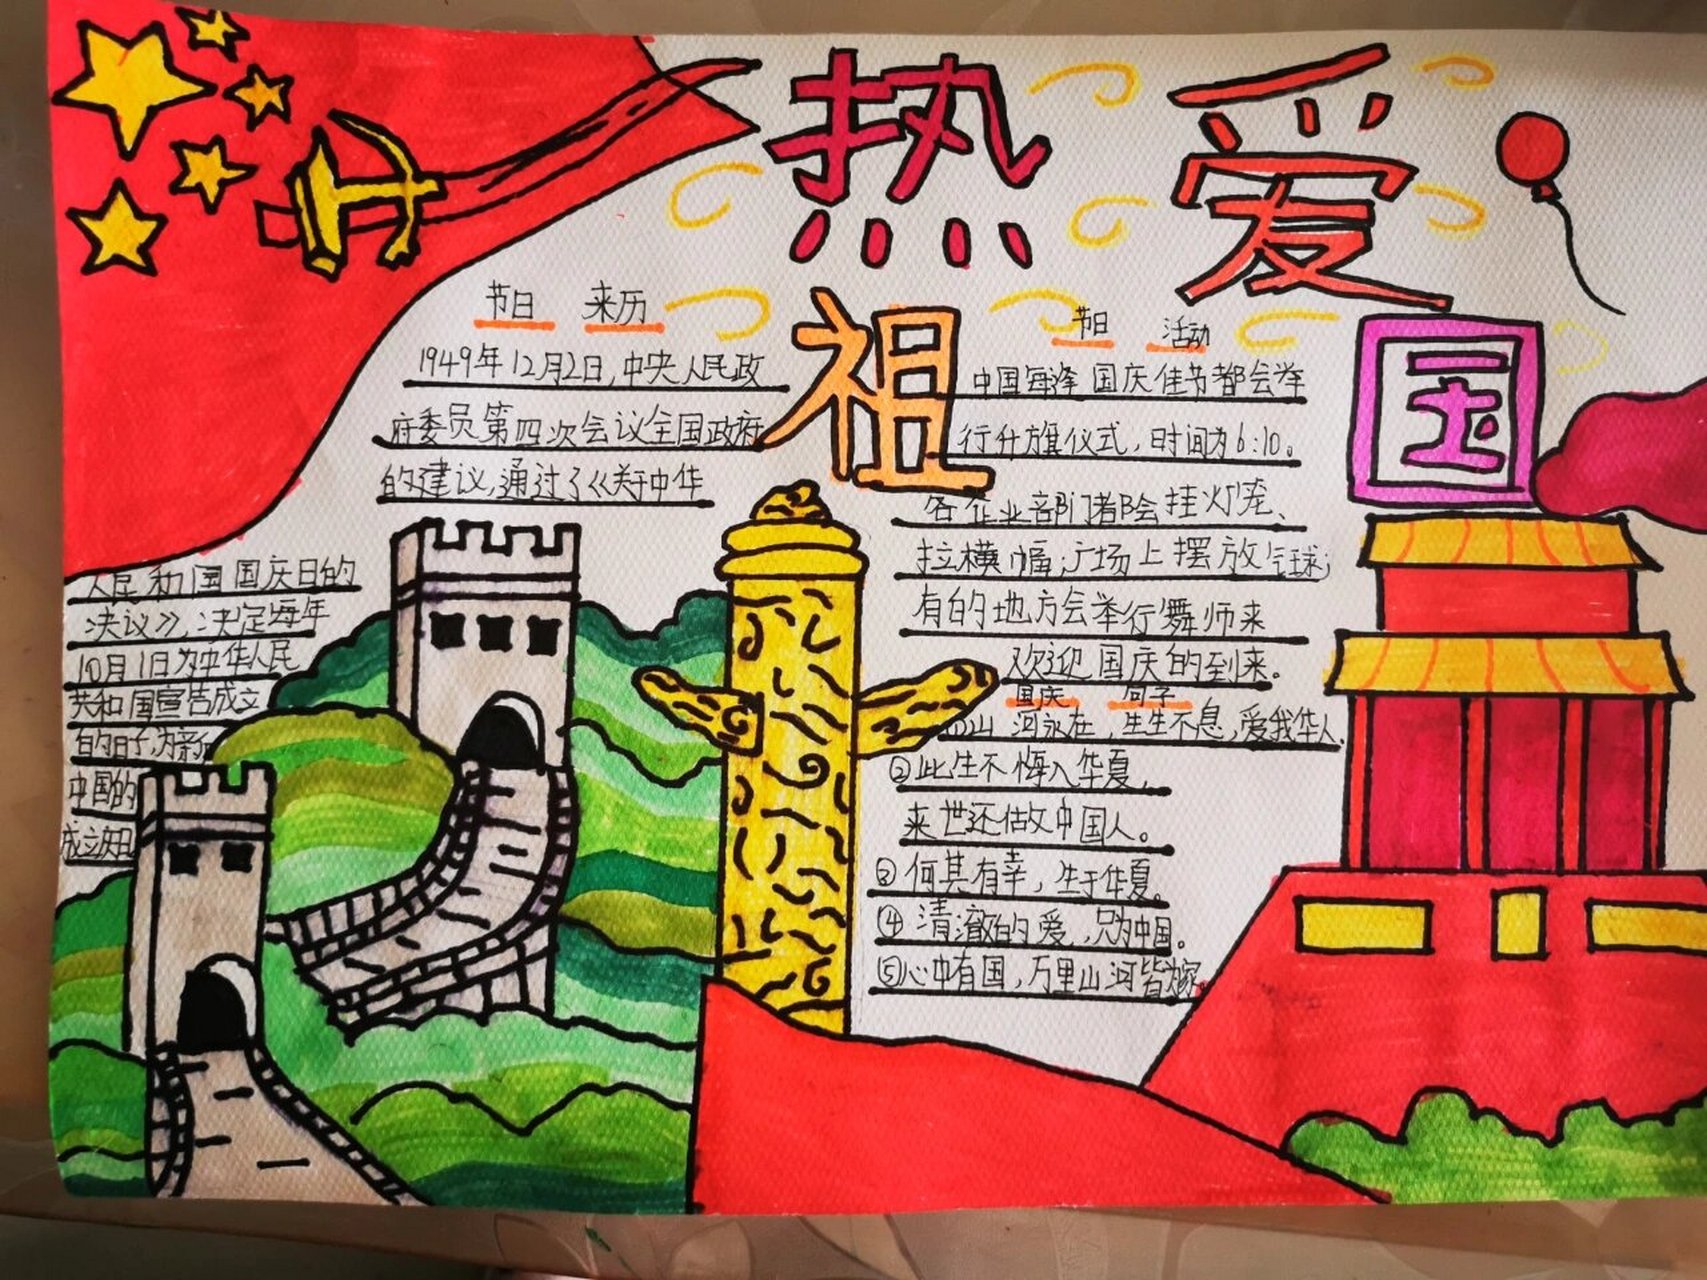 热爱
祖国
节日 来历
1949年12月2日,中央人民政
府委员第四次会议全国政府
的建议,通过了《关于中华
人民和国国庆日的
决议》,决定每年
10月1日为中华人民
共和国宣告成立
的日子,为新
中国的
成立庆日
节日 活动
中国每逢国庆佳节都会举
行升旗仪式,时间为6:10。
各企业部门都会挂灯笼、
拉横幅;广场上摆放气球;
有的地方会举行舞师来
欢迎国庆的到来。
国庆 句子
①山河永在,生生不息,爱我华人
②此生不悔入华夏,
来世还做中国人。
③何其有幸,生于华夏。
④清澈的爱,只为中国。
⑤心中有国,万里山河皆为家